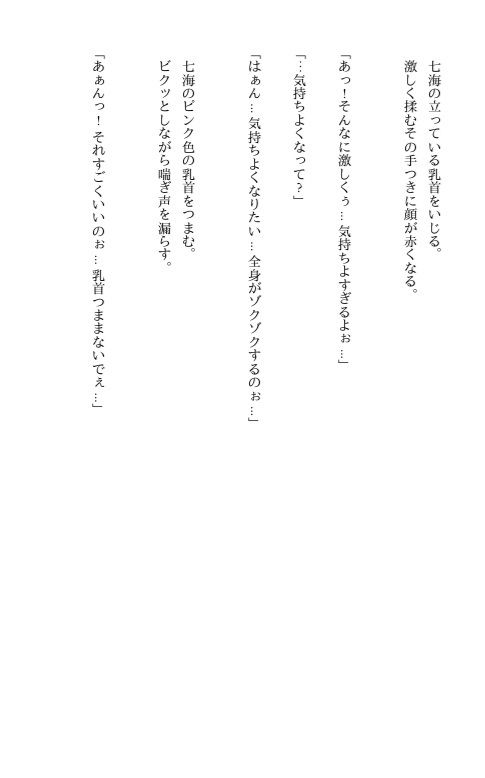 七海の立っている乳首をいじる。
激しく揉むその手つきに顔が赤くなる。
「あっ！そんなに激しくぅ…気持ちよすぎるよぉ…」
「…気持ちよくなって？」
「はぁん…気持ちよくなりたい…全身がゾクゾクするのぉ…」
七海のピンク色の乳首をつまむ。
ビクッとしながら喘ぎ声を漏らす。
「あぁんっ！それすごくいいのぉ…乳首つままないでぇ…」